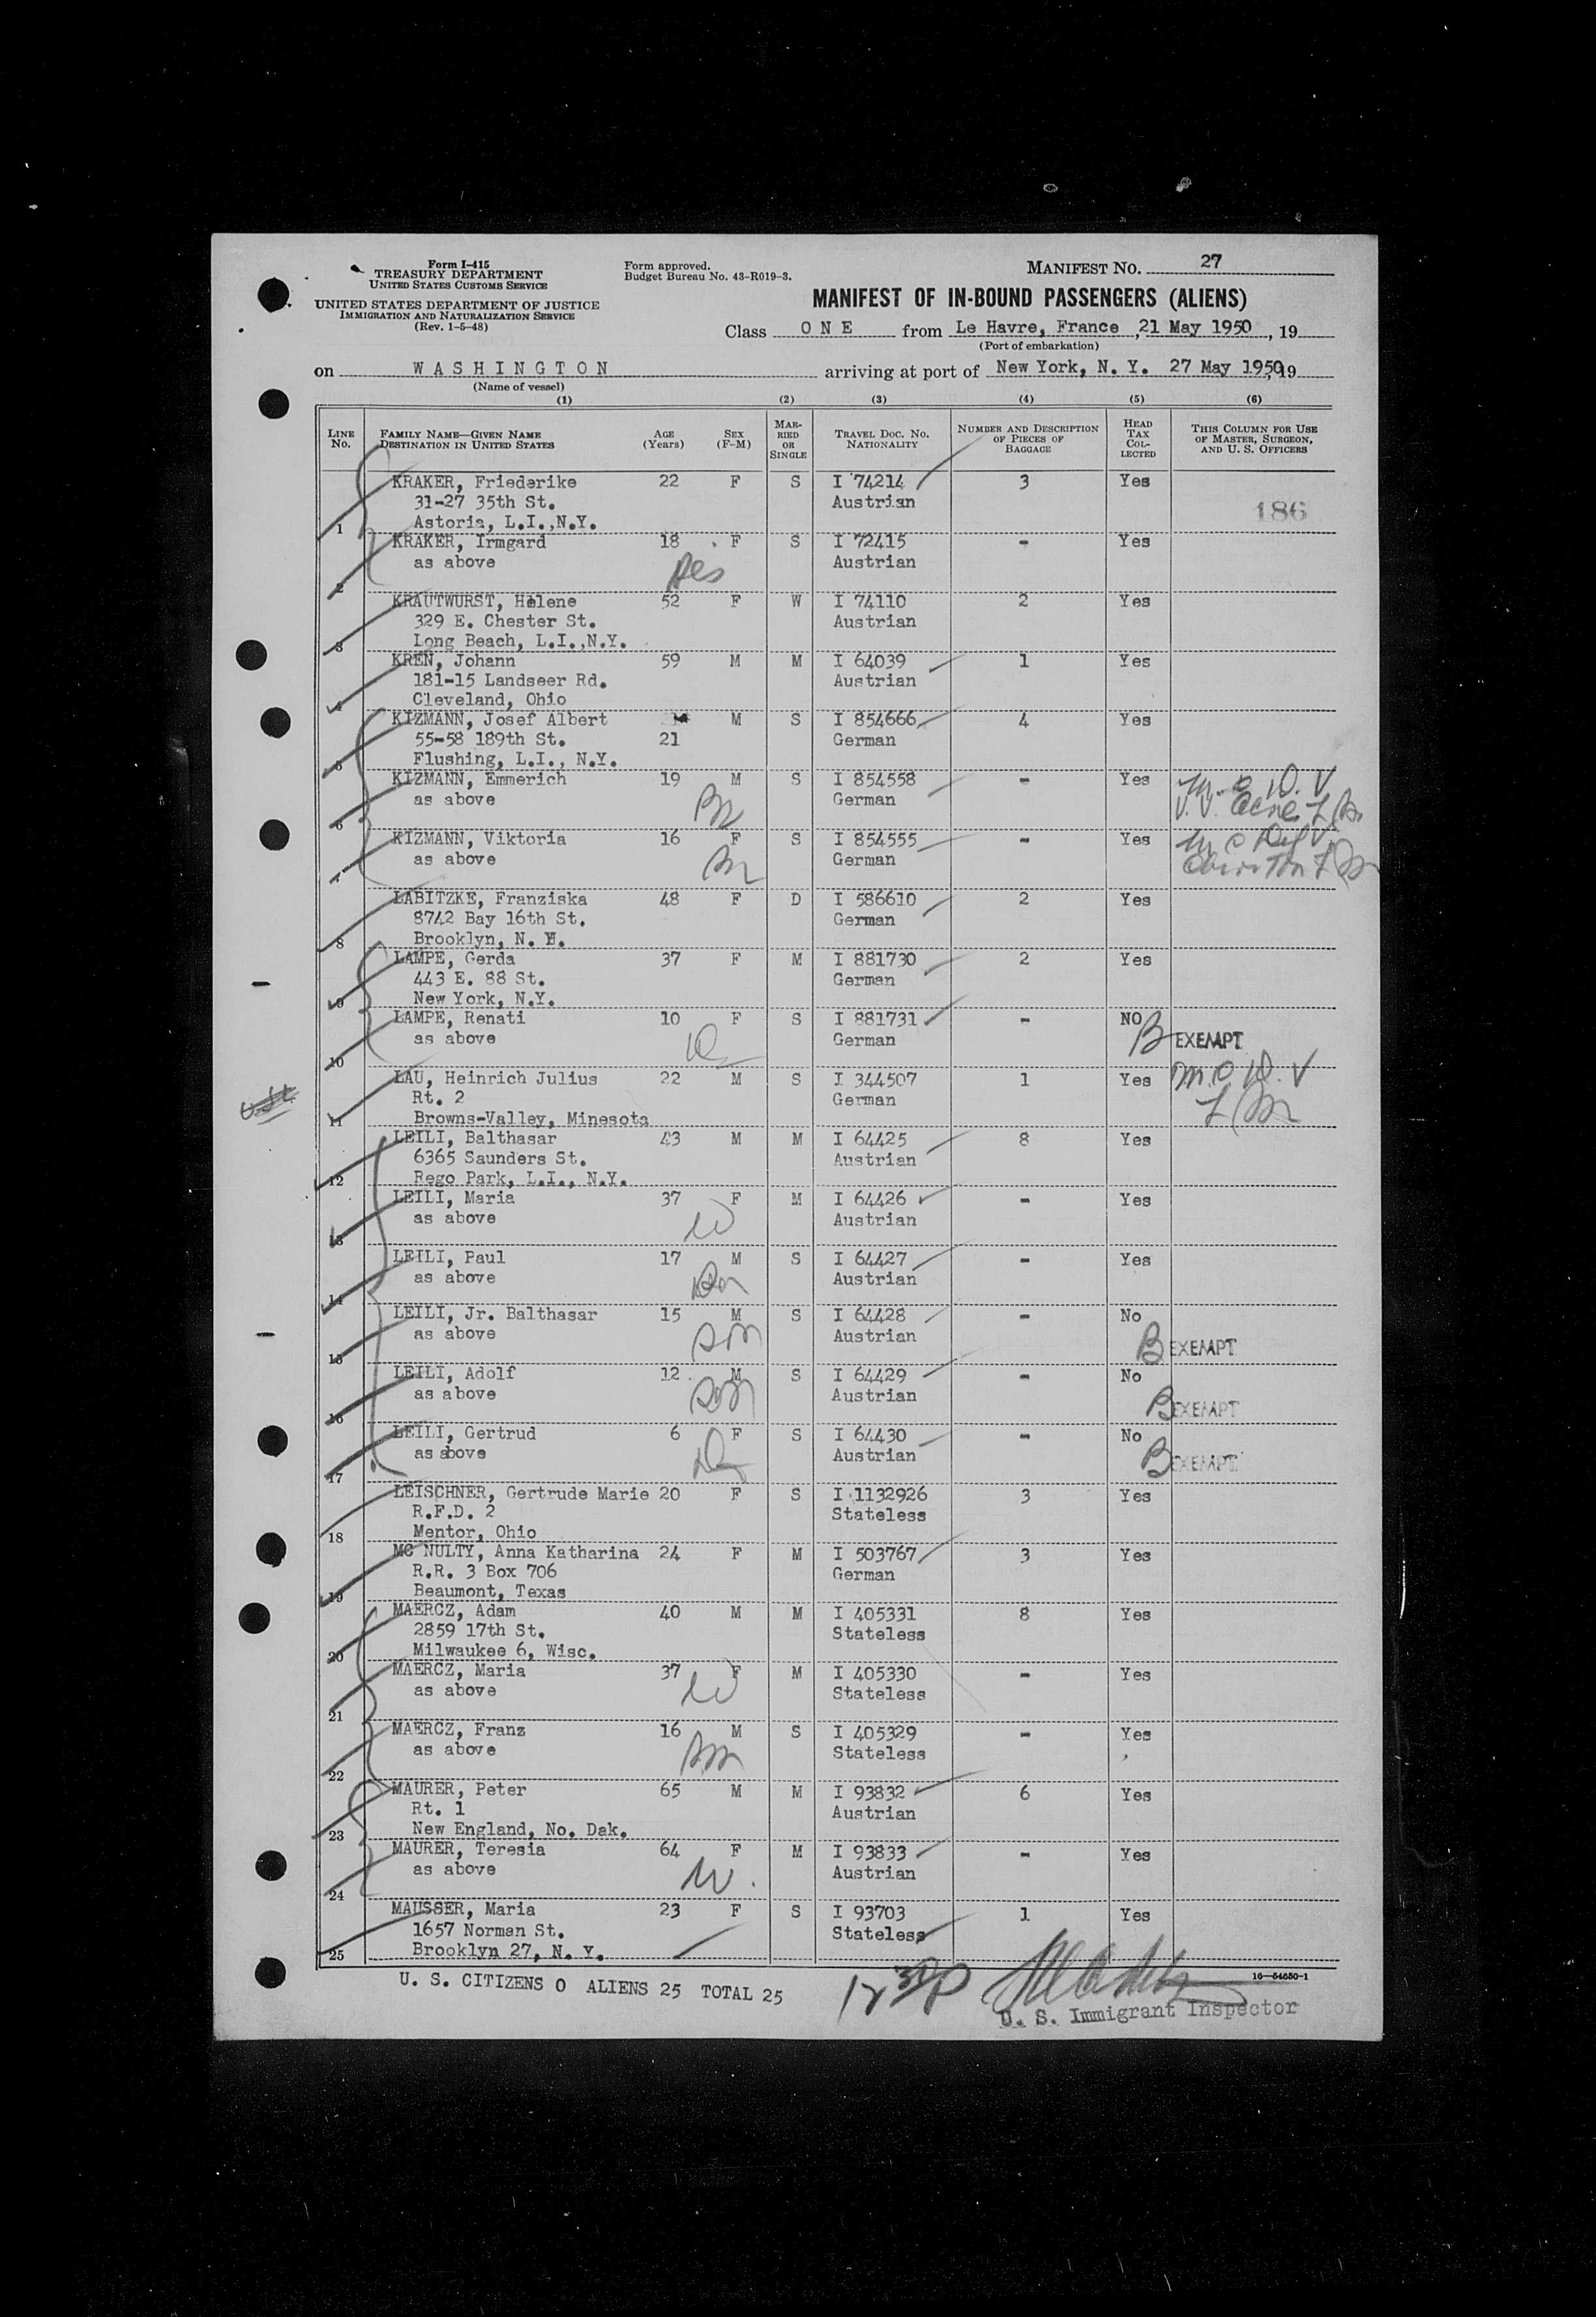 Form I-415
TREASURY DEPARTMENT
UNITED STATES CUSTOMS SERVICE
UNITED STATES DEPARTMENT OF JUSTICE
IMMIGRATION AND NATURALIZATION SERVICE
(Rev. 1-5-48)
Form approved.
Budget Bureau No. 43-R019-3.
MANIFEST NO. 27
MANIFEST OF IN-BOUND PASSENGERS (ALIENS)
Class O N E from Le Havre, France, 21 May 1950, 19
(Port of embarkation)
on W A S H I N G T O N arriving at port of New York, N. Y. 27 May 1950, 19
(Name of vessel)
(1) (2) (3) (4) (5) (6)
LINE NO. FAMILY NAME—GIVEN NAME DESTINATION IN UNITED STATES AGE (Years) SEX (F-M) MARRIED OR SINGLE TRAVEL DOC. NO. NATIONALITY NUMBER AND DESCRIPTION OF PIECES OF BAGGAGE HEAD TAX COLLECTED THIS COLUMN FOR USE OF MASTER, SURGEON, AND U. S. OFFICERS
KRAKER, Friederike 22 F S I 74214 3 Yes
31-27 35th St. Austrian 186
1 Astoria, L.I.,N.Y.
KRAKER, Irmgard 18 F S I 72415 - Yes
as above Austrian
2
KRAUTWURST, Helene 52 F W I 74110 2 Yes
329 E. Chester St. Austrian
3 Long Beach, L.I.,N.Y.
KREN, Johann 59 M M I 64039 1 Yes
181-15 Landseer Rd. Austrian
4 Cleveland, Ohio
KIZMANN, Josef Albert M S I 854666 4 Yes
55-58 189th St. 21 German
5 Flushing, L.I., N.Y.
KIZMANN, Emmerich 19 M S I 854558 - Yes
as above German
6
KIZMANN, Viktoria 16 F S I 854555 - Yes
as above German
7
LABITZKE, Franziska 48 F D I 586610 2 Yes
8742 Bay 16th St. German
8 Brooklyn, N. Y.
LAMPE, Gerda 37 F M I 881730 2 Yes
443 E. 88 St. German
9 New York, N.Y.
LAMPE, Renati 10 F S I 881731 - NO
as above German B EXEMPT
10
LAU, Heinrich Julius 22 M S I 344507 1 Yes
Rt. 2 German
11 Browns-Valley, Minesota
LEILI, Balthasar 43 M M I 64425 8 Yes
6365 Saunders St. Austrian
12 Rego Park, L.I., N.Y.
LEILI, Maria 37 F M I 64426 - Yes
as above W Austrian
13
LEILI, Paul 17 M S I 64427 - Yes
as above Austrian
14
LEILI, Jr. Balthasar 15 M S I 64428 - No
as above Son Austrian B EXEMPT
15
LEILI, Adolf 12 M S I 64429 - No
as above Son Austrian B EXEMPT
16
LEILI, Gertrud 6 F S I 64430 - No
as above Austrian B EXEMPT
17
LEISCHNER, Gertrude Marie 20 F S I 1132926 3 Yes
R.F.D. 2 Stateless
18 Mentor, Ohio
MC NULTY, Anna Katharina 24 F M I 503767 3 Yes
R.R. 3 Box 706 German
19 Beaumont, Texas
MAERCZ, Adam 40 M M I 405331 8 Yes
2859 17th St. Stateless
20 Milwaukee 6, Wisc.
MAERCZ, Maria 37 F M I 405330 - Yes
as above W Stateless
21
MAERCZ, Franz 16 M S I 405329 - Yes
as above Stateless
22
MAURER, Peter 65 M M I 93832 6 Yes
Rt. 1 Austrian
23 New England, No. Dak.
MAURER, Teresia 64 F M I 93833 - Yes
as above W. Austrian
24
MAUSSER, Maria 23 F S I 93703 1 Yes
1657 Norman St. Stateless
25 Brooklyn 27, N. Y.
U. S. CITIZENS 0 ALIENS 25 TOTAL 25
16—54650-1
12 30 P
U. S. Immigrant Inspector